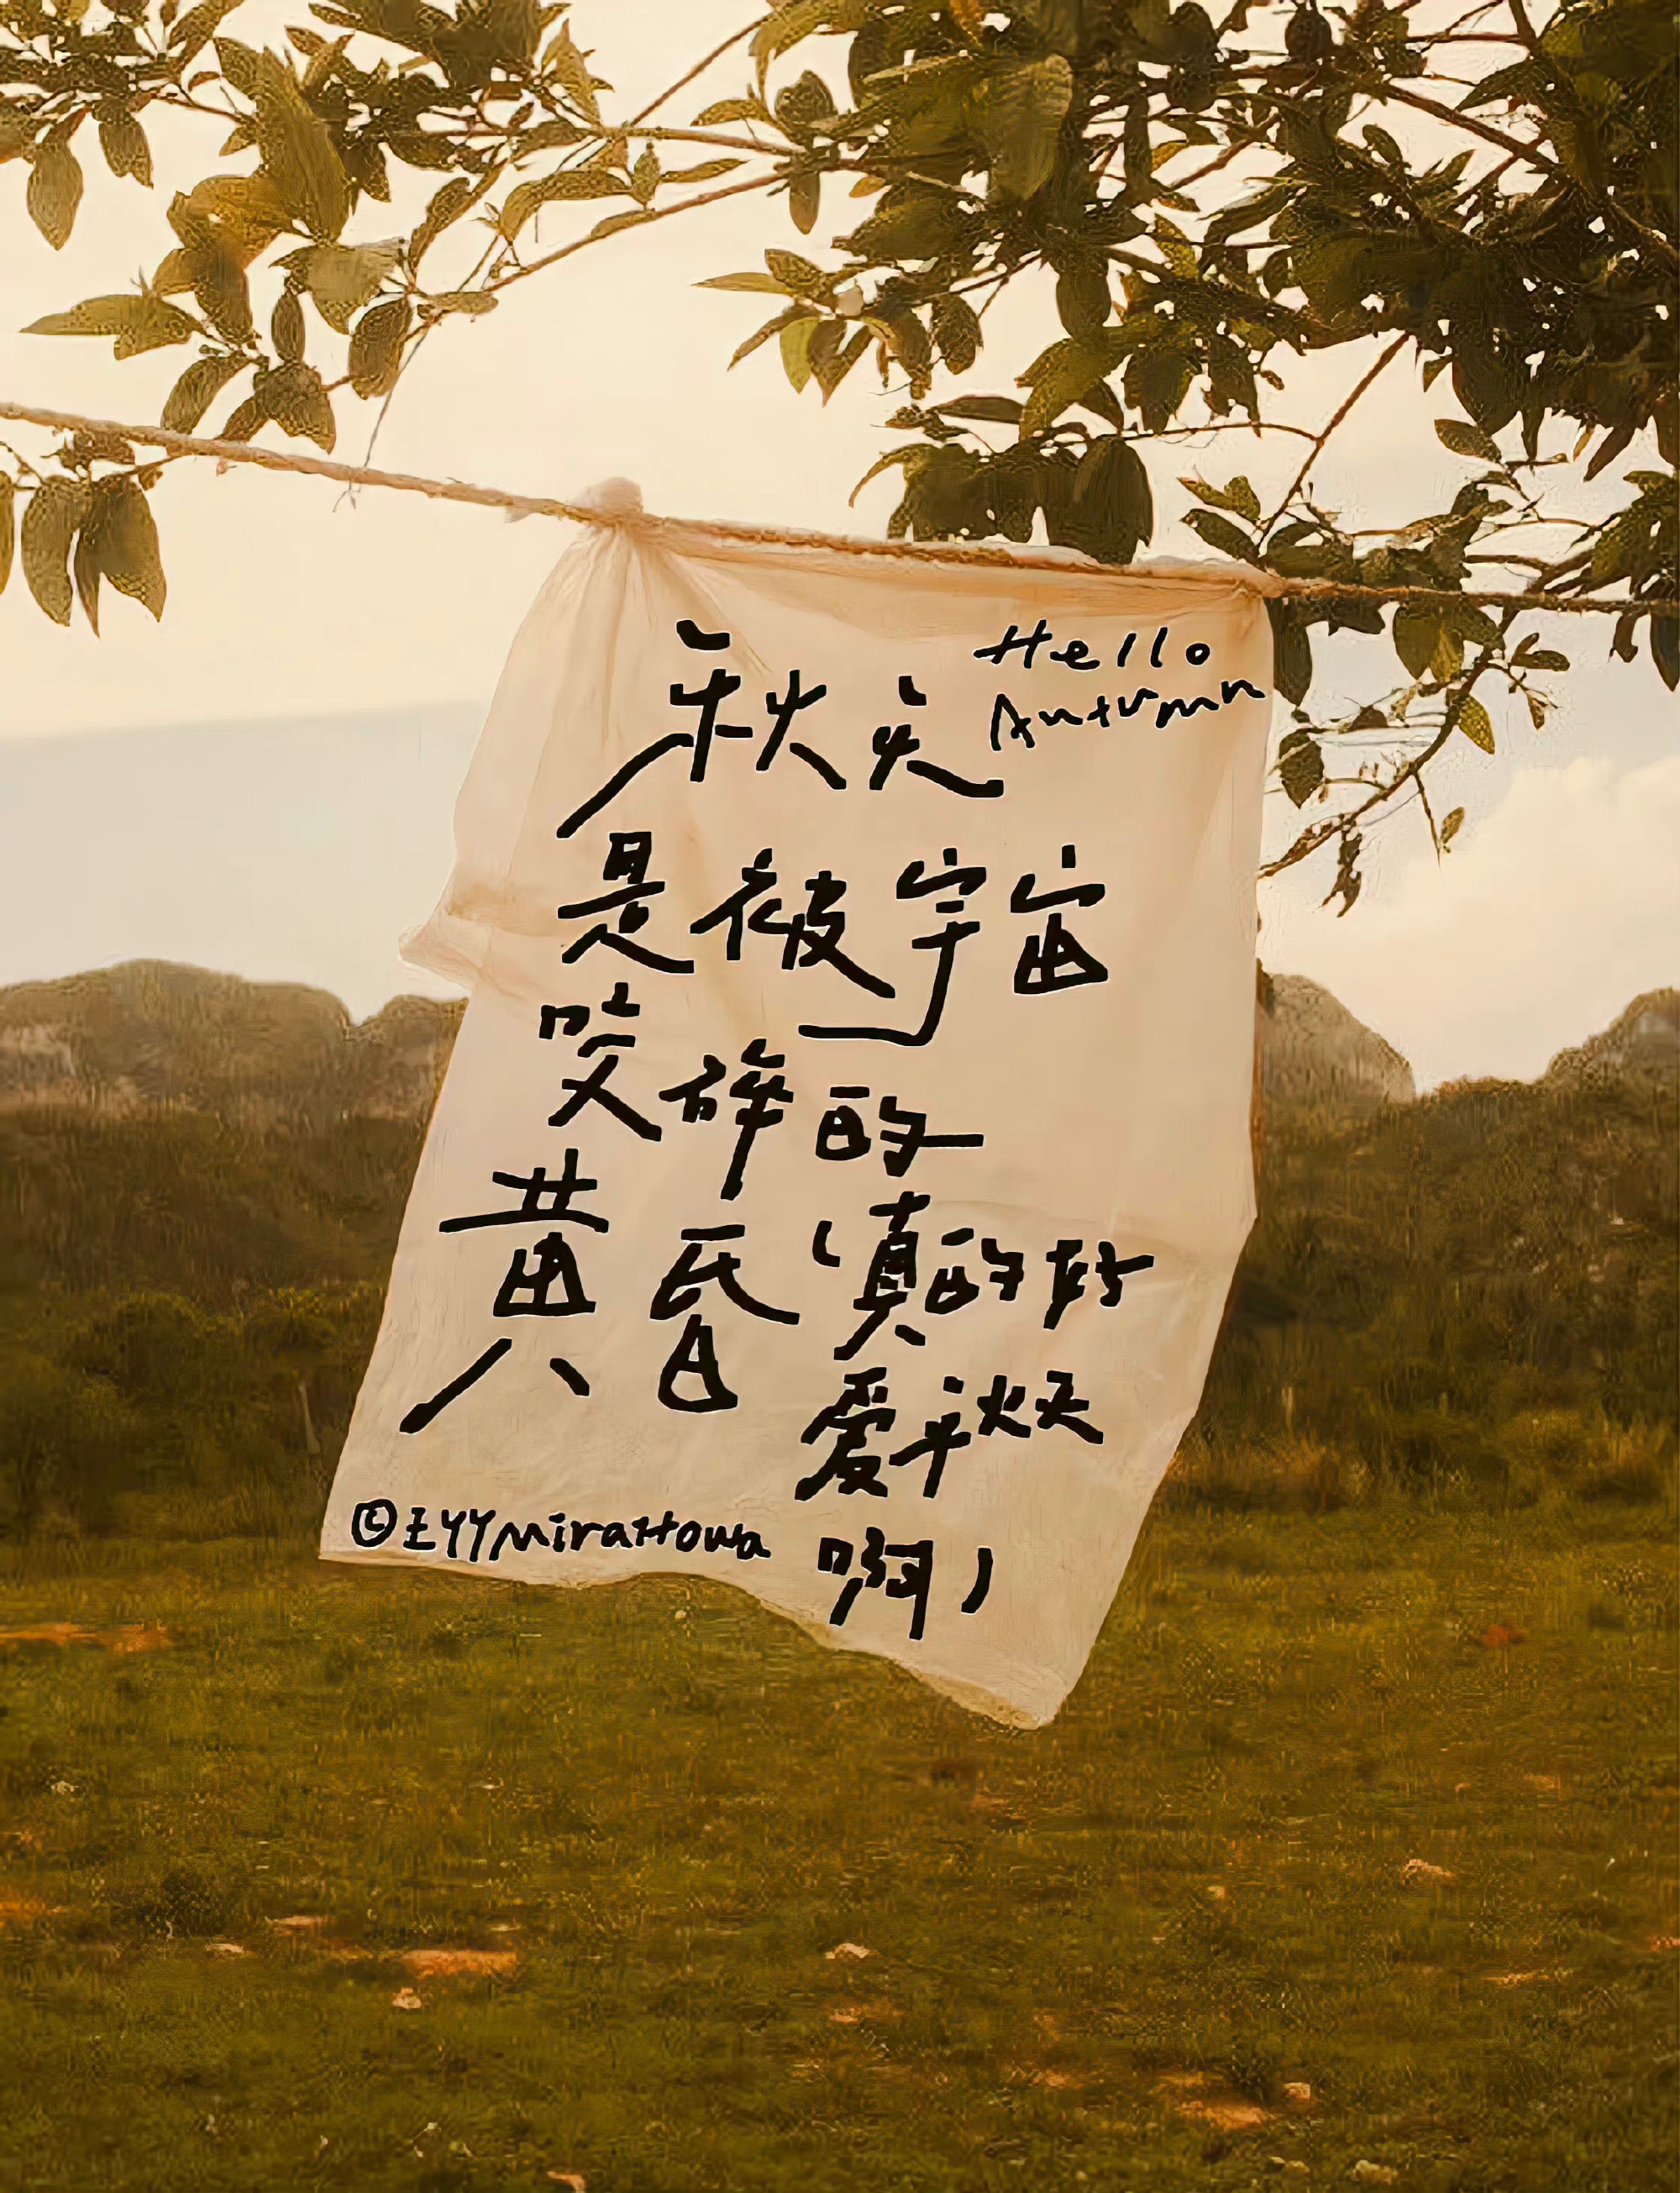 Hello
Autumn
秋天
是被宇宙
咬碎的
黄昏
(真的好
爱秋天
啊)
©王YYMiraitowa